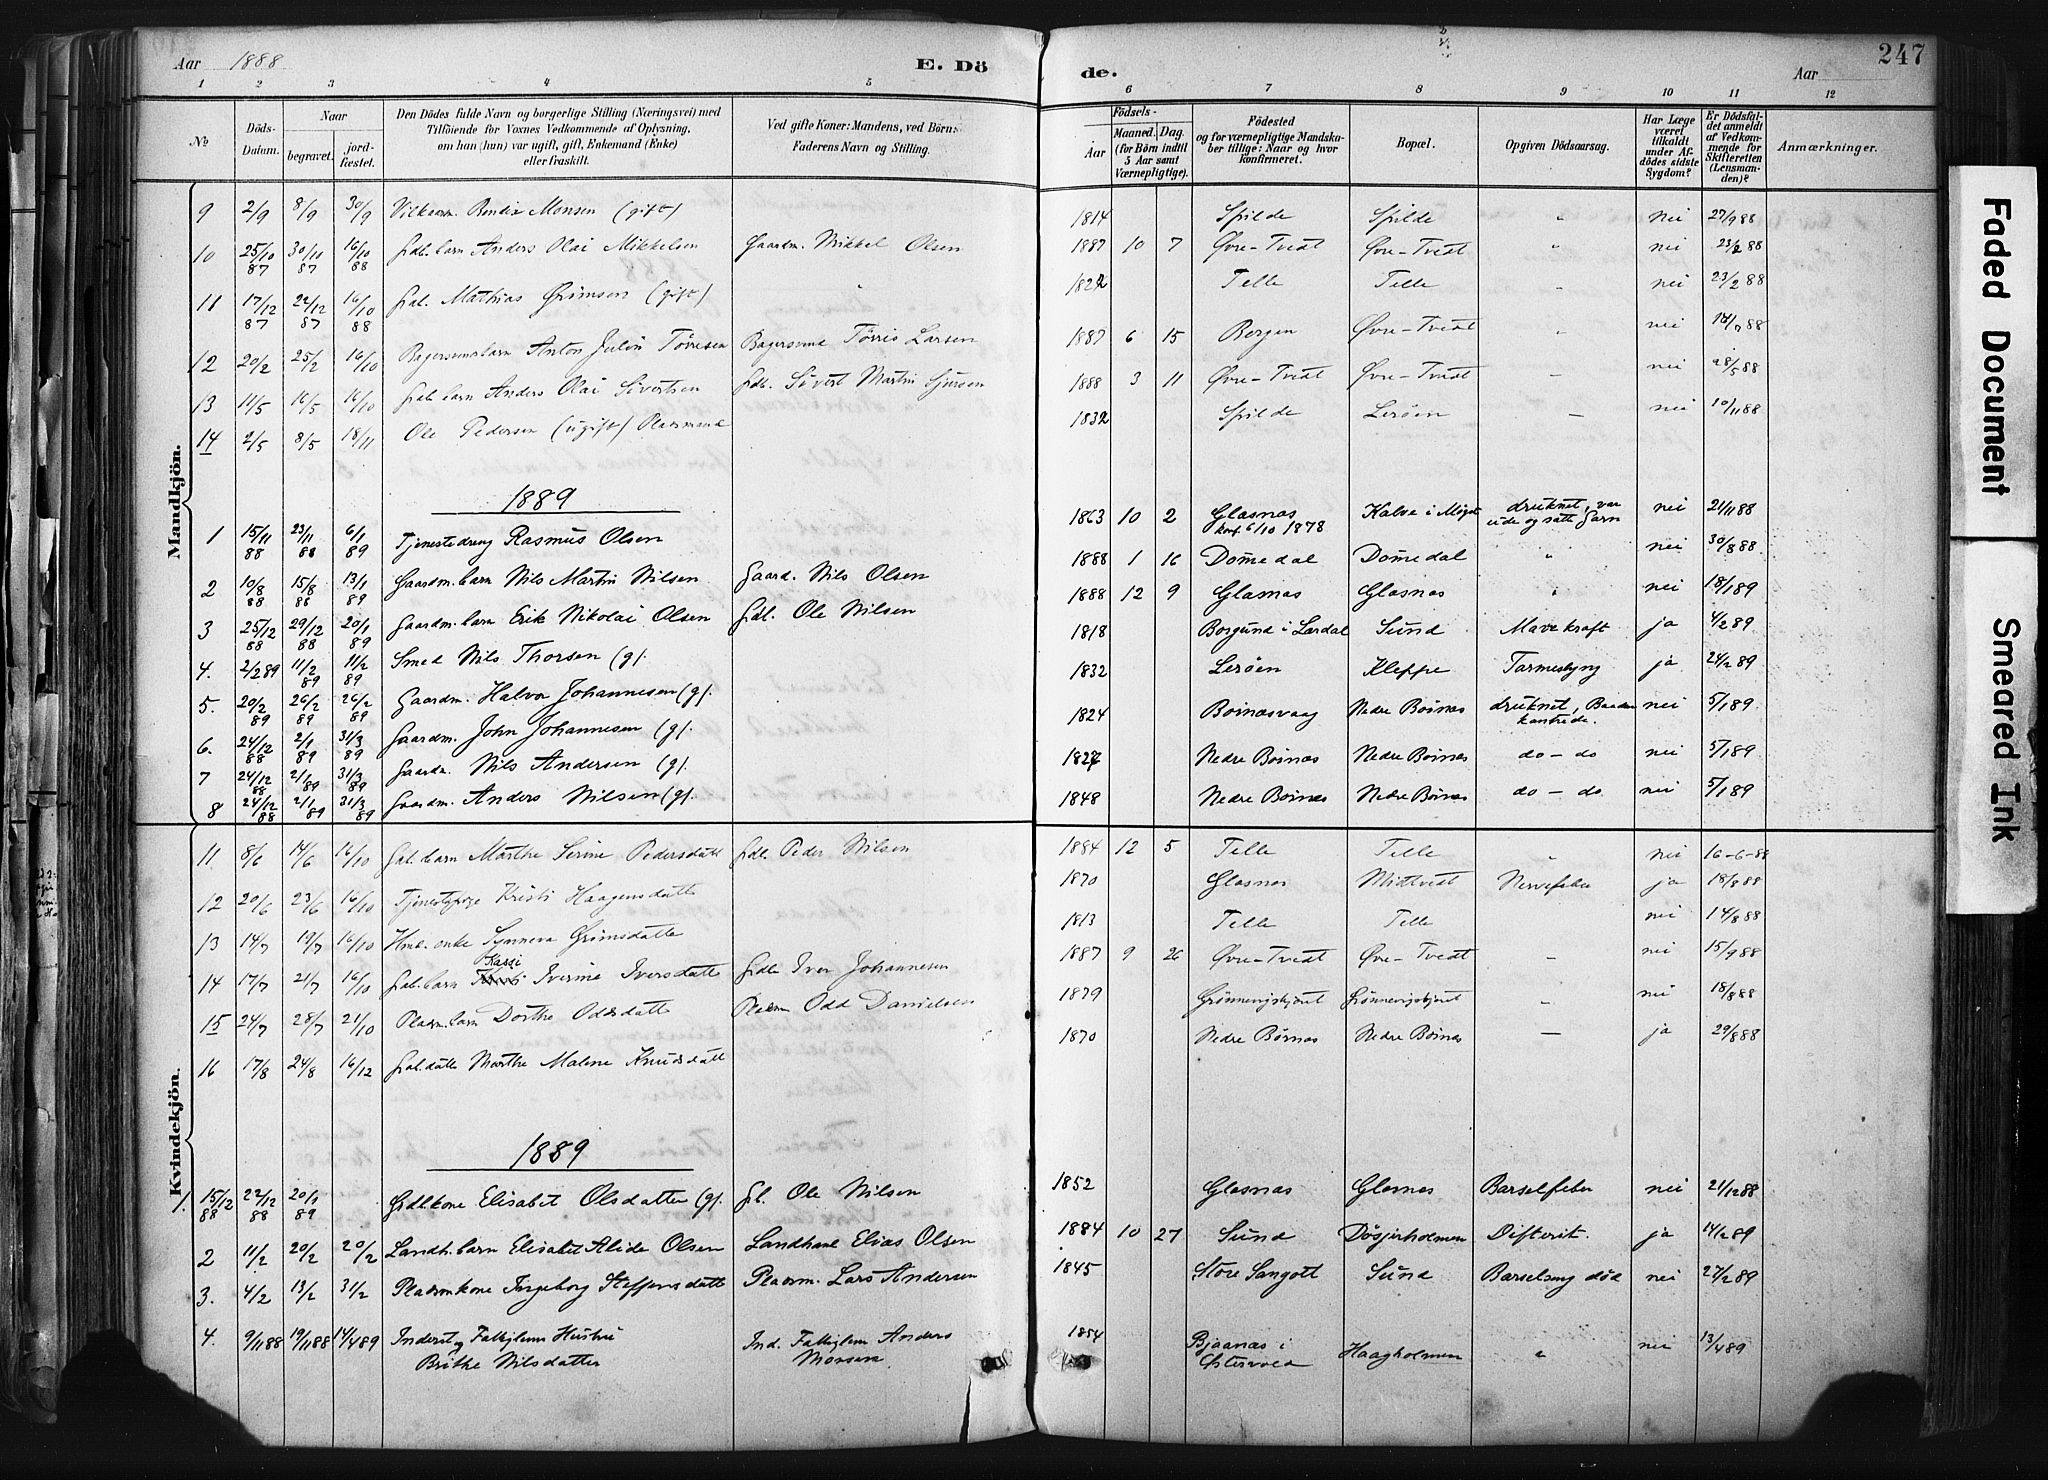 Aar 1888
E. Dö
de.
Aar
247
1 2 3 4 5 6 7 8 9 10 11 12
No
Döds-Datum.
Naar
begravet.
jord-fæstet.
Den Dödes fulde Navn og borgerlige Stilling (Næringsvei) med
Tilföiende for Voxnes Vedkommende af Oplysning,
om han (hun) var ugift, gift, Enkemand (Enke)
eller fraskilt.
Ved gifte Koner: Mandens, ved Börn:
Faderens Navn og Stilling.
Födsels-
Aar
Maaned.
Dag.
(for Börn indtil
5 Aar samt
Værnepligtige).
Födested
og for værnepligtige Mandska-
ber tillige: Naar og hvor
konfirmeret.
Bopæl.
Opgiven Dödsaarsag.
Har Læge
været
tilkaldt
under Af-
dödes sidste
Sygdom?
Er Dödsfal-
det anmeldt
af Vedkom-
mende for
Skifteretten
(Lensman-
den)?
Anmærkninger.
Mandkjön.
9 2/9 8/9 30/9 Vilkaarm. Bendix Monsen (gift) 1814 Spilde Spilde " nei 27/9 88
10 25/10 87 30/10 87 16/10 88 Gdb. barn Anders Olai Mikkelsen Gaardm. Mikkel Olsen 1887 10 7 Øvre-Tvedt Øvre-Tvedt " nei 23/2 88
11 17/12 87 22/12 87 16/10 88 Gdb. Mathias Grimsen (gift) " 1822 Telle Telle " nei 23/2 88
12 20/2 25/2 16/10 Bagersvend barn Anton Julin Tørresen Bagersvend Tørris Larsen 1887 6 15 Bergen Øvre-Tvedt " nei 88
13 11/5 16/5 16/10 Gdb. barn Anders Olai Sivertsen Gdb. Sivert Martin Sjursen 1888 3 11 Øvre-Tvedt Øvre-Tvedt - nei 28/5 88
14 2/5 8/5 18/11 Ole Pedersen (ugift) Pladsmand 1832 Spilde Lerøen - nei 10/11 88
1889
1 15/11 88 23/11 88 6/1 89 Tjenestedreng Rasmus Olsen 1863 10 2 Glæsnæs konf. 6/10 1878 Kalve i Møgst. druknet, var ude og satte Garn nei 21/11 88
2 10/8 88 15/8 88 13/1 89 Gaardm. barn Nils Martin Nilsen Gaard. Nils Olsen 1888 1 16 Domedal Domedal " nei 30/8 88
3 25/12 88 29/12 88 20/1 89 Gaardm. barn Erik Nikolai Olsen Gdb. Ole Nilsen 1888 12 9 Glæsnæs Glæsnæs " nei 18/1 89
4. 2/2 89 11/2 89 11/2 89 Smed Nils Thorsen (g). 1818 Borgund i Lærdal Sund Mavekraft ja 4/2 89
5. 20/2 89 26/2 89 26/2 89 Gaardm. Halvor Johannesen (g). 1832 Lerøen Kleppe Tarmeslyng ja 24/2 89
6. 24/12 88 2/1 89 31/3 89 Gaardm. John Johannesen (g). 1824 Boinæsvaag Nedre Boinæs druknet, Baaden kantrede. nei 5/1 89
7 24/12 88 2/1 89 31/3 89 Gaardm. Nils Andersen (g). 1827 Nedre Boinæs Nedre Boinæs do - do nei 5/1 89
8 24/12 88 2/1 89 31/3 89 Gaardm. Anders Nilsen (g). 1848 Nedre Boinæs Nedre Boinæs do - do nei 5/1 89
Kvindekjön.
11 8/6 14/6 16/10 Gdb. barn Marthe Serine Pedersdatt Gdb. Peder Nilsen 1884 12 5 Telle Telle " nei 16-6-88
12 20/6 23/6 16/10 Tjenestepige Kristi Haagensdatte 1870 Glæsnæs Midtvedt Nervefeber ja 18/8 88
13 14/7 19/7 16/10 Hmb. enke Synneva Grimsdatte 1813 Telle Telle nei 14/8 88
14 17/7 21/7 16/10 Gdb. barn Kassi Iverine Iversdatte Gdb. Iver Johannesen 1887 9 26 Øvre-Tvedt Øvre-Tvedt - nei 15/9 88
15 24/7 28/7 21/10 Pladsm. barn Dorthe Oddsdatte Pladsm Odd Danielsen 1879 - nei 18/8 88
16 17/8 24/8 16/12 Gdb. datte Marthe Malene Knudsdatt 1870 Nedre Børnæs Nedre Boinæs - ja 29/8 88
1889
1. 15/12 88 22/12 88 20/1 89 Grdbkone Elisabet Olsdatter (g). Gb. Ole Nilsen 1852 Glæsnæs Glæsnæs Barselfeber nei 21/12 88
2 11/2 20/2 20/2 Landh. barn Elisabet Alide Olsen Landhand Elias Olsen 1884 10 27 Sund Døsjerholmen Difterit. ja 14/2 89
3. 4/2 13/2 31/2 Pladsmkone Ingeborg Steffensdatt Pladsm. Lars Andersen 1845 Store Sangolt Sund Barselseng død nei 27/2 89
4. 9/11 88 19/11 88 14/4 89 Inderst og Fattiglem Hustru Ind. Fattiglem Anders 1854 Bjaanæs i Haagholmen " nei 13/4 89
Brithe Nilsdatter Monsen
Faded Document
Smeared Ink